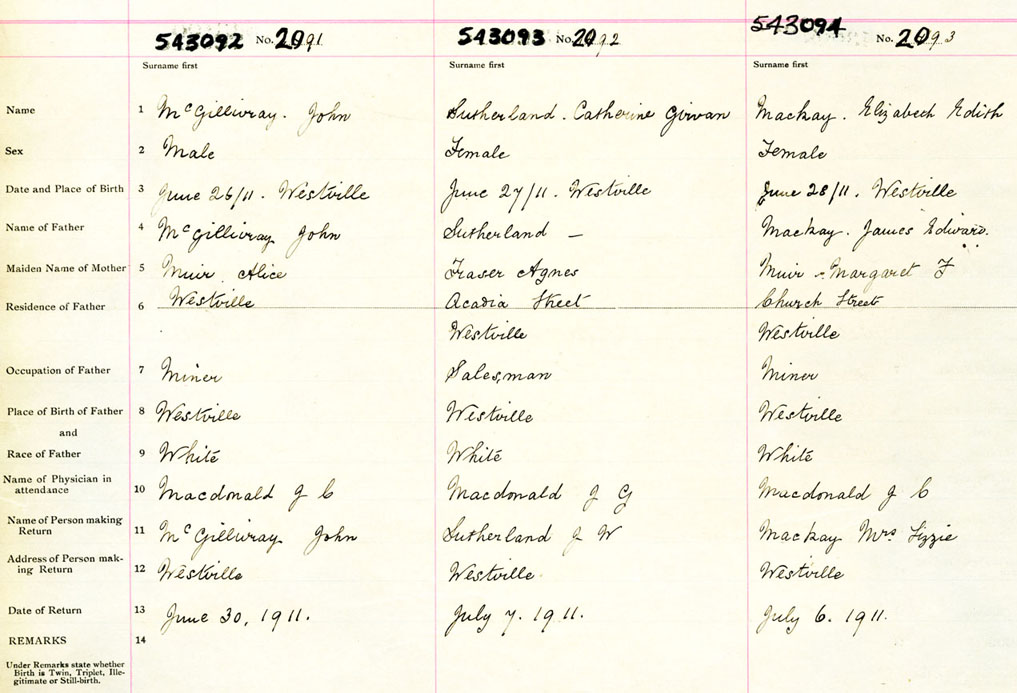 543092 No. 2091 543093 No. 2092 543094 No. 2093
Surname first Surname first Surname first
Name 1 McGillivray. John Sutherland. Catherine Girvan Mackay. Elizabeth Edith
Sex 2 Male Female Female
Date and Place of Birth 3 June 26/11. Westville June 27/11. Westville June 28/11. Westville
Name of Father 4 McGillivray John Sutherland — Mackay. James Edward.
Maiden Name of Mother 5 Muir Alice Fraser Agnes Muir - Margaret F
Residence of Father 6 Westville Acadia Street Church Street
Westville Westville
Occupation of Father 7 Miner Salesman Miner
Place of Birth of Father 8 Westville Westville Westville
and
Race of Father 9 White White White
Name of Physician in
attendance 10 Macdonald J C Macdonald J G Macdonald J C
Name of Person making
Return 11 McGillivray John Sutherland J W Mackay Mrs Lizzie
Address of Person mak-
ing Return 12 Westville Westville Westville
Date of Return 13 June 30, 1911. July 7. 1911. July 6. 1911.
REMARKS 14
Under Remarks state whether
Birth is Twin, Triplet, Ille-
gitimate or Still-birth.